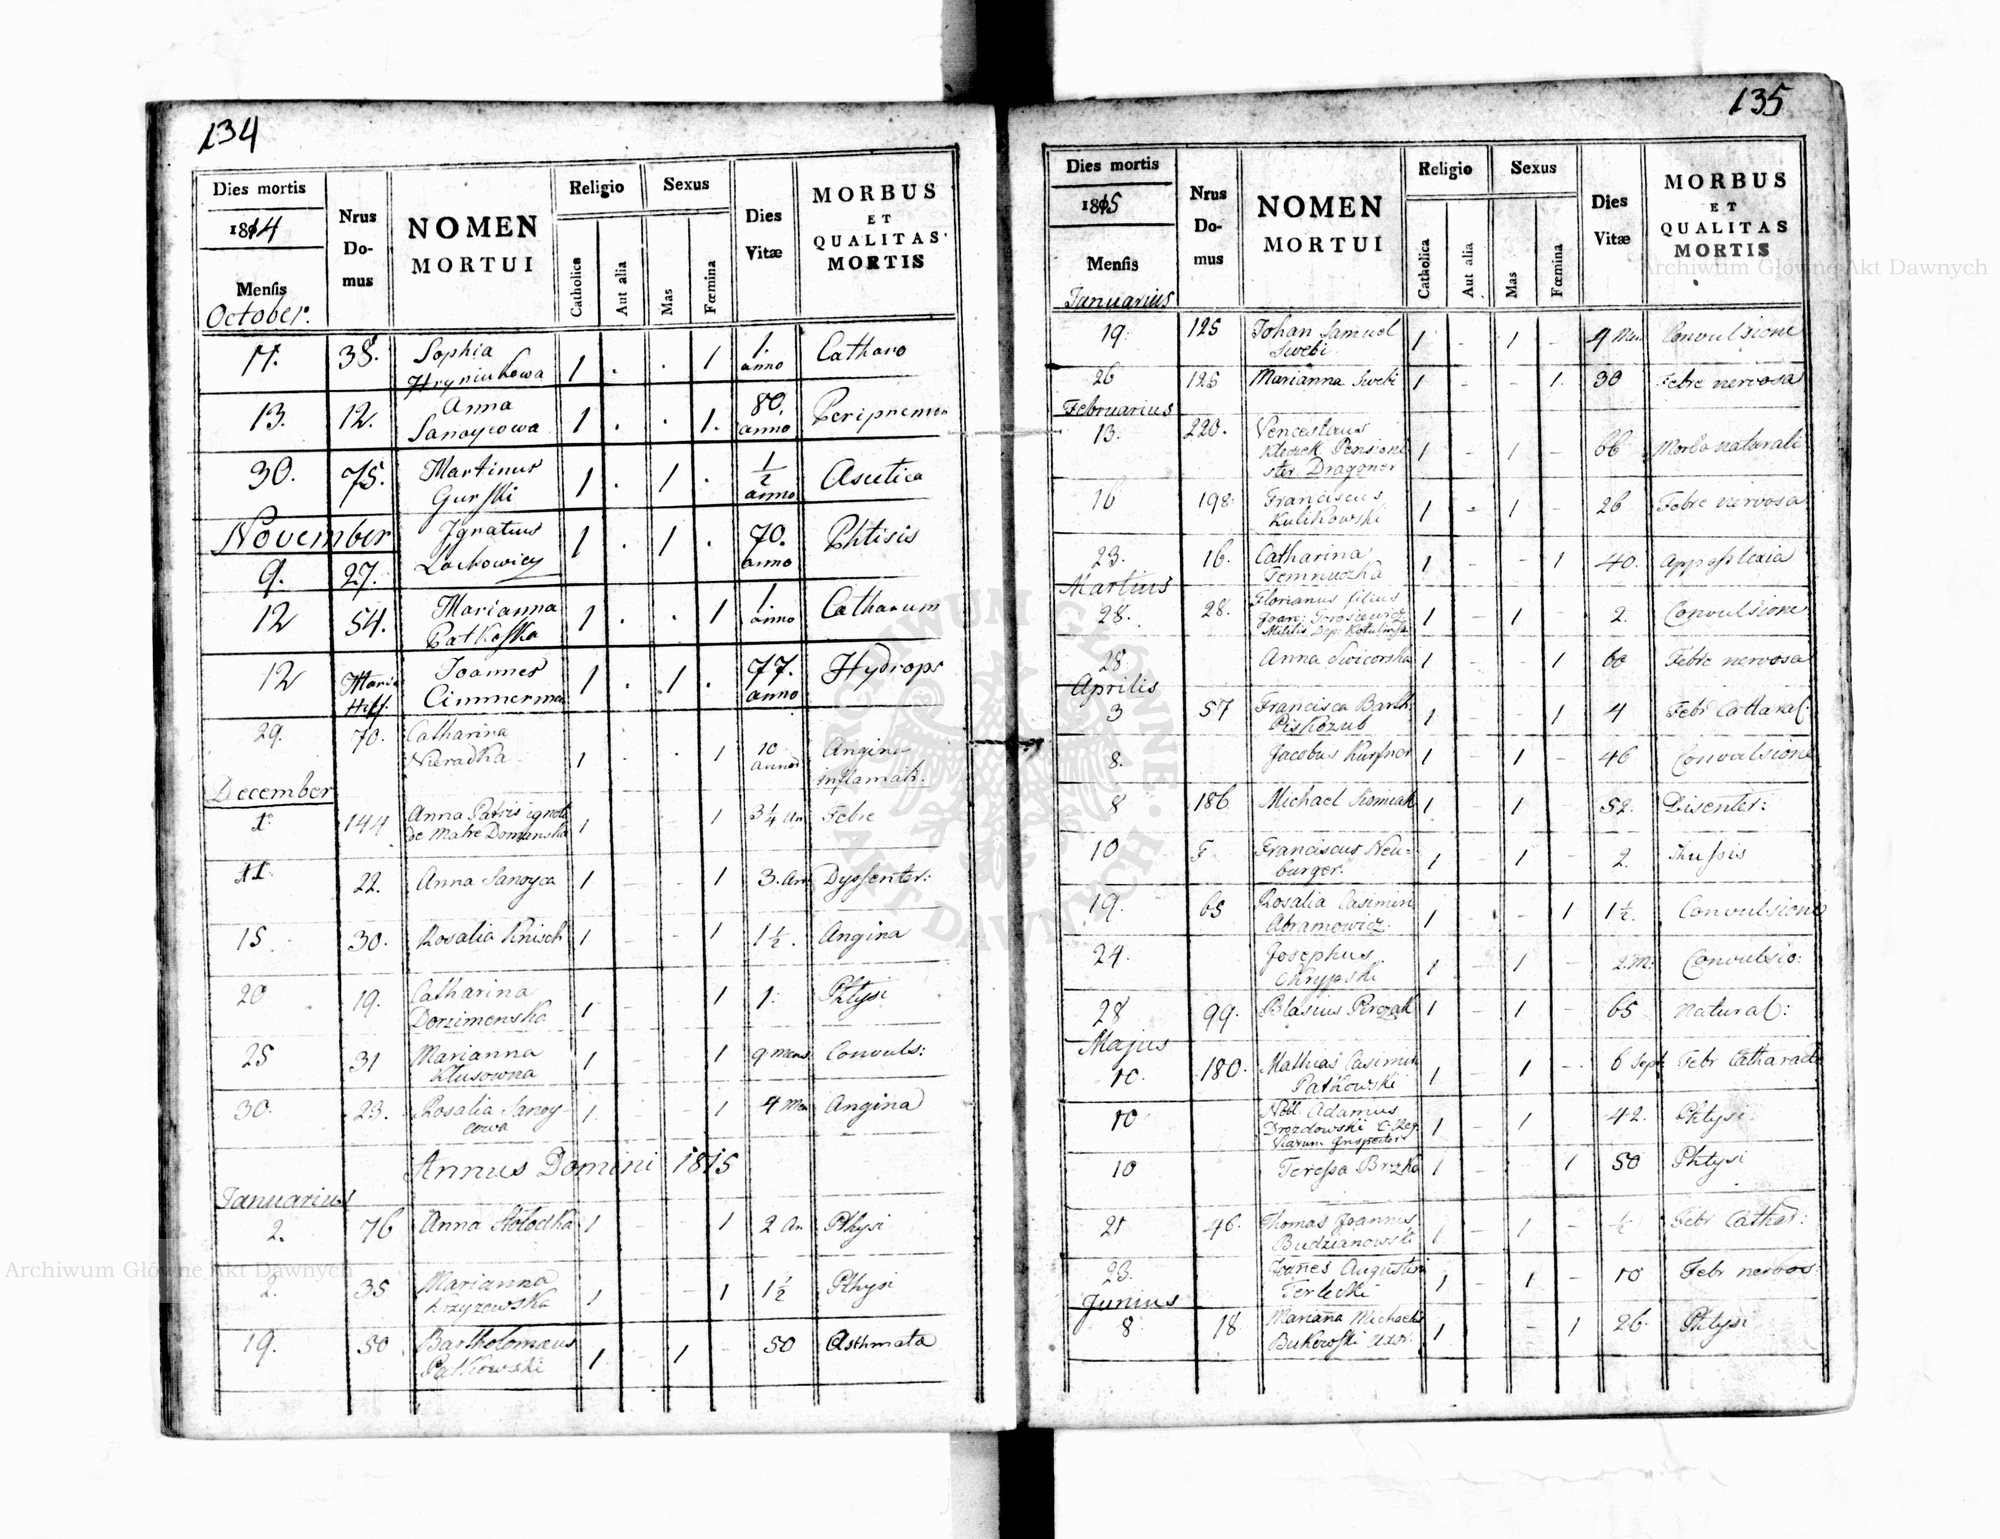 134
Dies mortis
1814
Mensis
Nrus Do- mus
NOMEN MORTUI
Religio
Catholica
Aut alia
Sexus
Mas
Fœmina
Dies Vitæ
MORBUS ET QUALITAS MORTIS
October:
11. 38. Sophia Hryniukowa 1 . . 1 1. anno Catharo
13. 12. Anna Sanoycowa 1 . . 1. 80. anno Peripnemon
30. 75. Martinus Gurski 1 . 1 . 1/2 anno Ascitica
November
9. 27. Ignatius Lachowicz 1 . 1 . 70. anno Phtisis
12 54. Marianna Patkoska 1 . . 1 1. anno Catharum
12 Maria Hilf. Joannes Cimmerma 1 . 1 . 77. anno Hydrops
29. 70. Catharina Nieradka 1 . . 1 10 annor Angine inflamatr.
December
1° 144 Anna Patris ignoti de Matre Domanska 1 - - 1 3 1/4 An Febre
11. 22. Anna Sanoyca 1 - - 1 3. An Dyssenter:
15 30. Rosalia Knisch 1 - - 1 1 1/2. Angina
20 19. Catharina Dorzimewska 1 - - 1 1. Phtysi
25 31 Marianna Klusowna 1 - - 1 9. Mens Convuls:
30. 23. Rosalia Sanoy- cowa 1 - - 1 4 Men Angina
Annus Domini 1815
Januarius
2. 76 Anna Stolodka 1 - - 1 2 An Phtysi
2. 35 Marianna Krzyzewska 1 - - 1 1 1/2 Phtysi
19. 50 Bartholomaus Patkowski 1 - 1 - 50 Asthmata
135
Dies mortis
1815
Mensis
Nrus Do- mus
NOMEN MORTUI
Religio
Catholica
Aut alia
Sexus
Mas
Fœmina
Dies Vitæ
MORBUS ET QUALITAS MORTIS
Januarius
19. 125 Johan Samuel Swebi 1 - 1 - 9 Men Convulsione
26 125 Marianna Swebi 1 - - 1. 30 Febre nervosa
Februarius
13. 220. Venceslaus Klozek Pensioni ster Dragoner 1 - 1 - 66 Morbo naturali
16 198. Franciscus Kulikowski 1 - 1 - 26 Febre nervosa
23. 16. Catharina Temniuczka 1 - - 1 40. Appoplexia
Martius
28. 28. Florianus filius Joan: Torosiewicz Militis Dep: 1 - 1 - 2. Convulsione
28. Anna Swicorska 1 - - 1 60 Febre nervosa
Aprilis
3 57 Francisca Barth: Piskozub 1 - - 1 4 Febr Catharal:
8. Jacobus Kurfner 1 - 1 - 46 Convulsione
8 186 Michael Siomiak 1 - 1 52. Disenter:
10 F Franciscus Neu- burger. 1 - 1 - 2. Thussis
19. 65 Rosalia Casimiri Abramowicz. 1 - - 1 1 1/2. Convulsione
24. Josephus Chrypski 1 - 1 - 2.M: Convulsio:
28 99. Blasius Perozak 1 - 1 - 65 Natural:
Majus
10. 180. Mathias Casimiri Patkowski 1 - 1 - 6 Sept Febr Catharale
10 Nobl Adamus Drozdowski C. Reg. Viarum Inspector 1 - 1 - 42. Phtysi
10 Teressa Brzka 1 - - 1 50 Phtysi
21 46. Thomas Joannis Budzianowski 1 - 1 - 1/2 Febr Cathar:
23. Joañes Augustin Terlecki 1 - 1 - 10 Febr nervos:
Junius
8 18 Mariaña Michaelis Bukowski uxor: 1 - - 1 26. Phtysi
Archiwum Główne Akt Dawnych
Archiwum Główne Akt Dawnych
ARCHIWUM GŁÓWNE AKT DAWNYCH